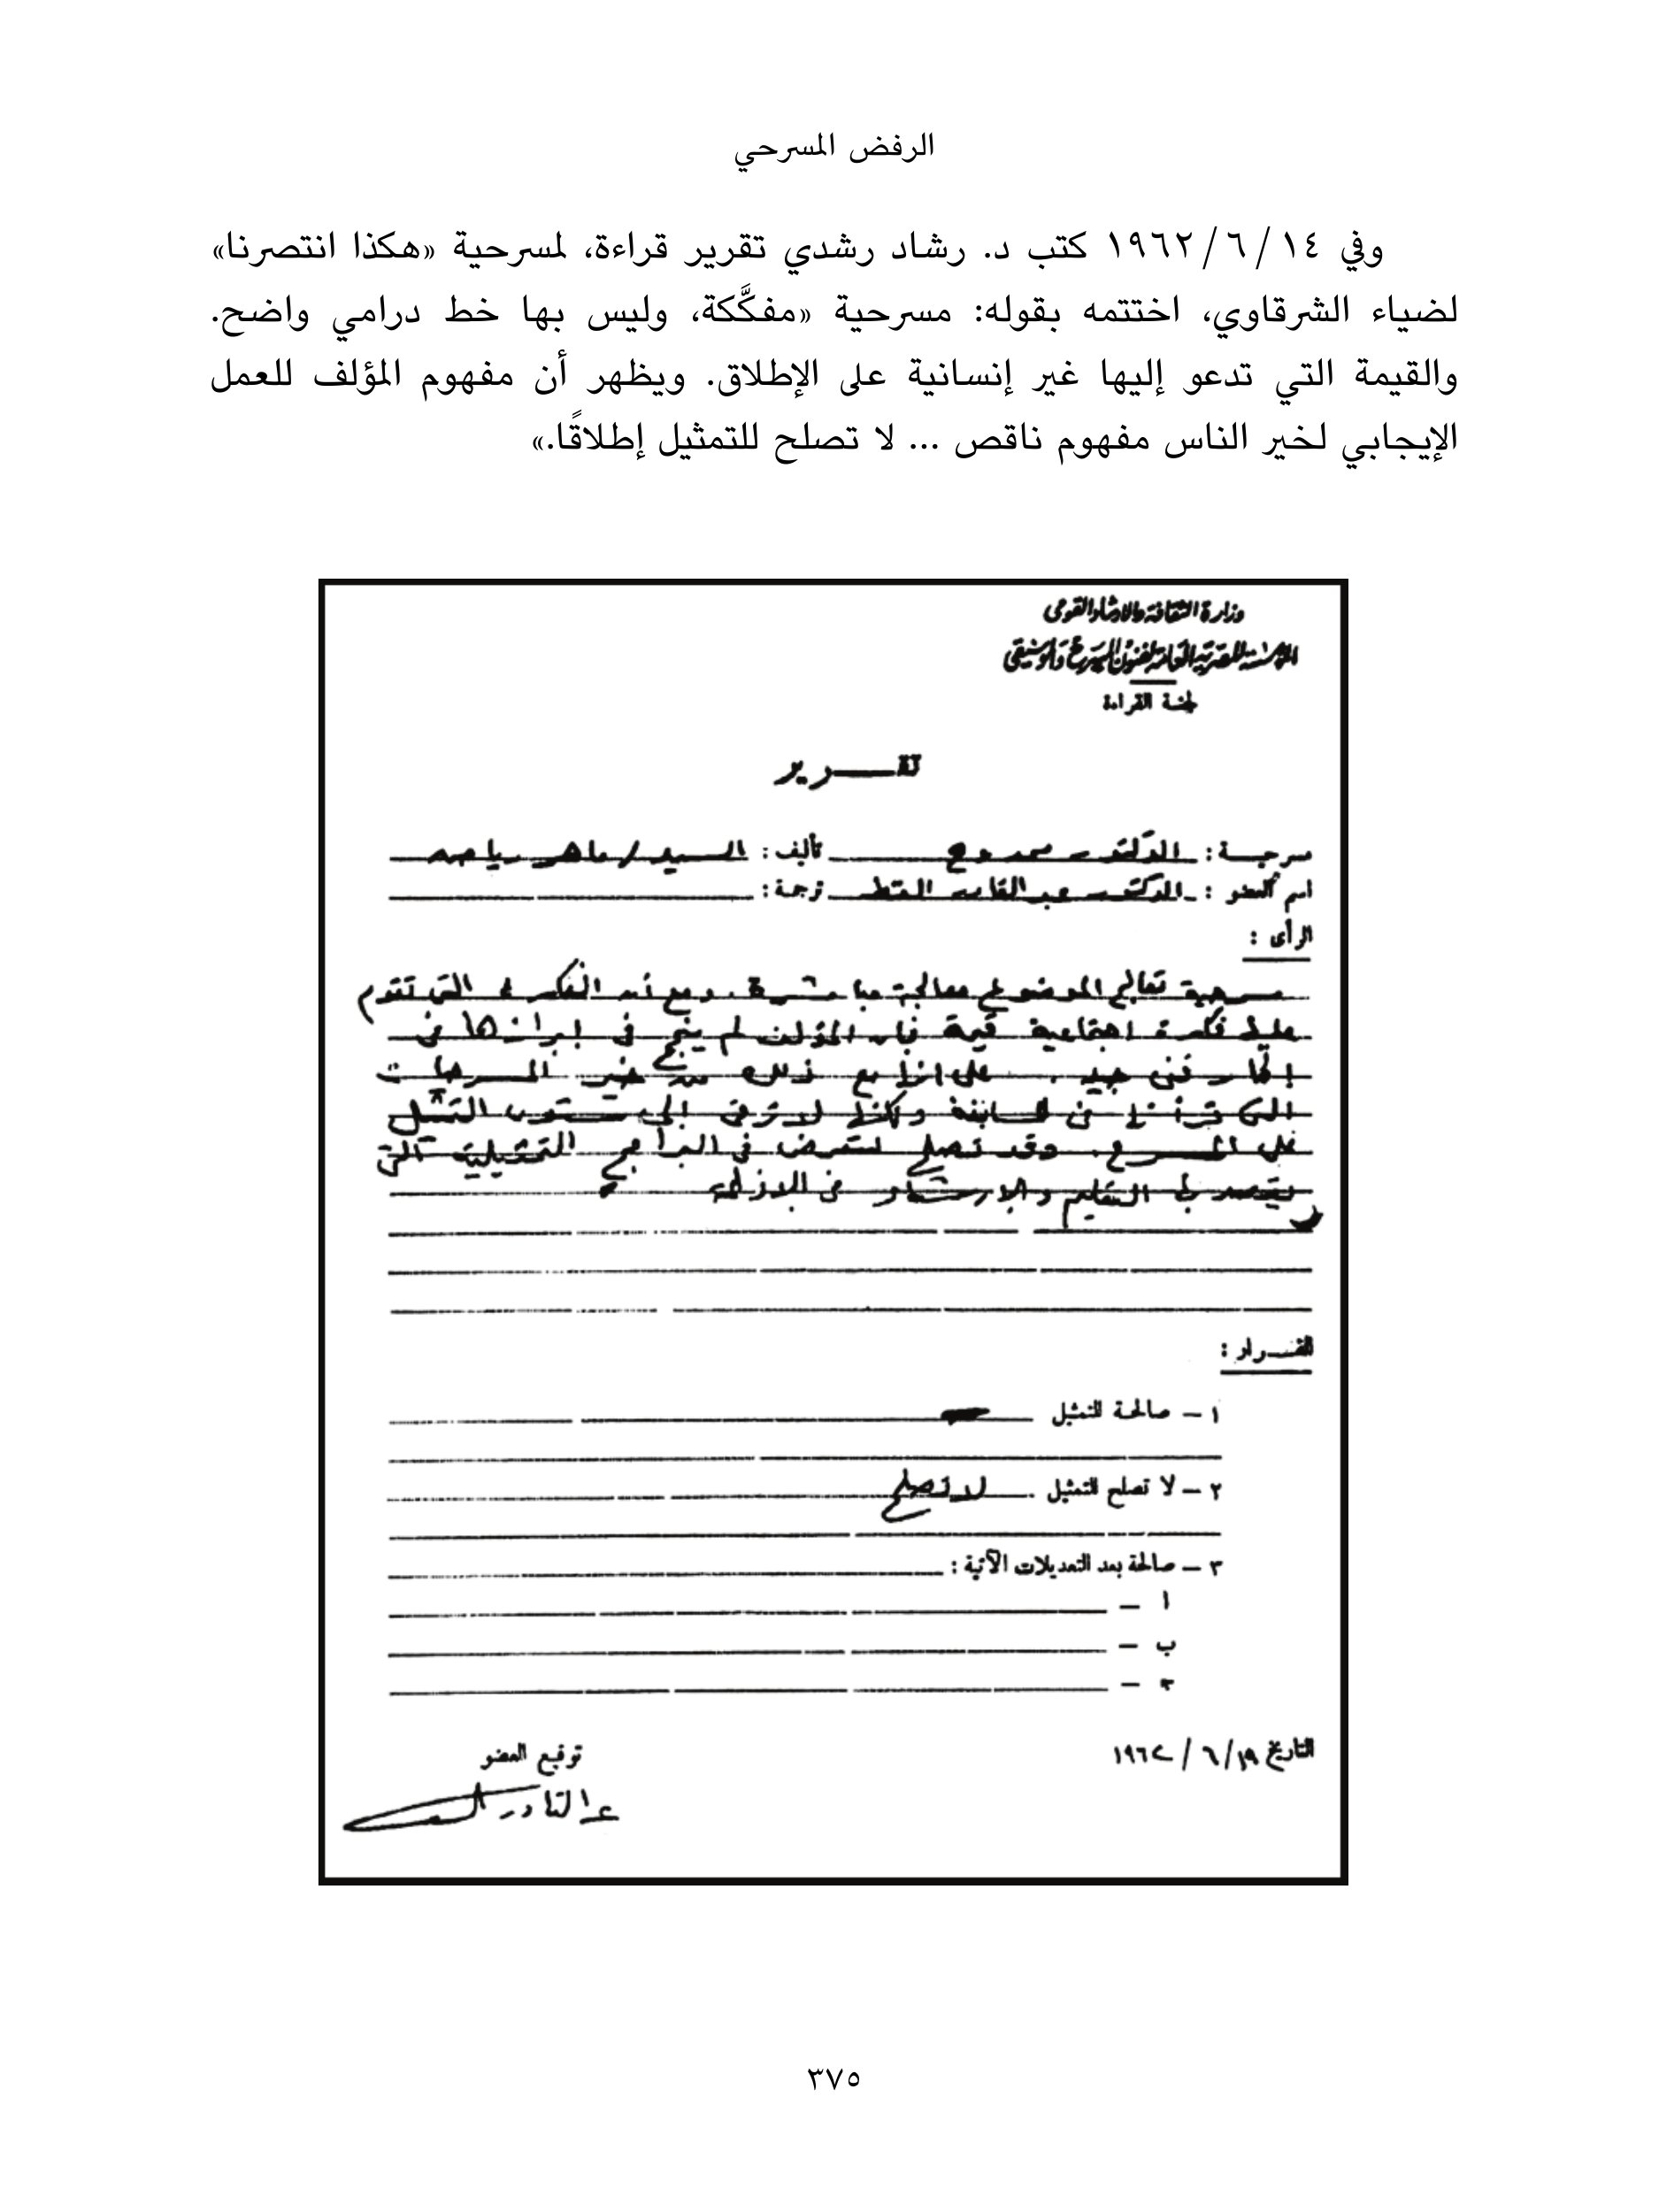 الرفض المسرحي
وفي ١٤ / ٦ / ١٩٦٢ كتب د. رشاد رشدي تقرير قراءة، لمسرحية «هكذا انتصرنا»
لضياء الشرقاوي، اختتمه بقوله: مسرحية «مفكَّكة، وليس بها خط درامي واضح.
والقيمة التي تدعو إليها غير إنسانية على الإطلاق. ويظهر أن مفهوم المؤلف للعمل
الإيجابي لخير الناس مفهوم ناقص … لا تصلح للتمثيل إطلاقًا.»
وزارة الثقافة والارشاد القومى
المؤسسة المصرية العامة لفنون المسرح والموسيقى
لجنة القراءة
تقـــرير
مسرحيـة : الدكتور ممدوح تأليف : السيد / ماهر رياض
اسم العضو : الدكتور عبد القادر القط ترجمة :
الرأى :
مسرحية تعالج الموضوع معالجة مباشرة. ومع أن الفكرة التى تقوم
عليها فكرة اجتماعية قيمة فإن المؤلف لم ينجح فى ابرازها فى
إطار فنى جيد. على انها مع ذلك من خير المسرحيات
التى قرأتها فى المسابقة ولكنها لا ترقى إلى مستوى التمثيل
على المسرح. وقد تصلح لتعرض فى البرامج التمثيلية التى
يقصد بها التعليم والارشاد فى الاذاعة
القــرار :
١ – صالحة للتمثيل
٢ – لا تصلح للتمثيل لا تصلح
٣ – صالحة بعد التعديلات الآتية :
ا –
ب –
ح –
التاريخ ١٩ / ٦ / ١٩٦٢
توقيع العضو
عبد القادر القط
٣٧٥